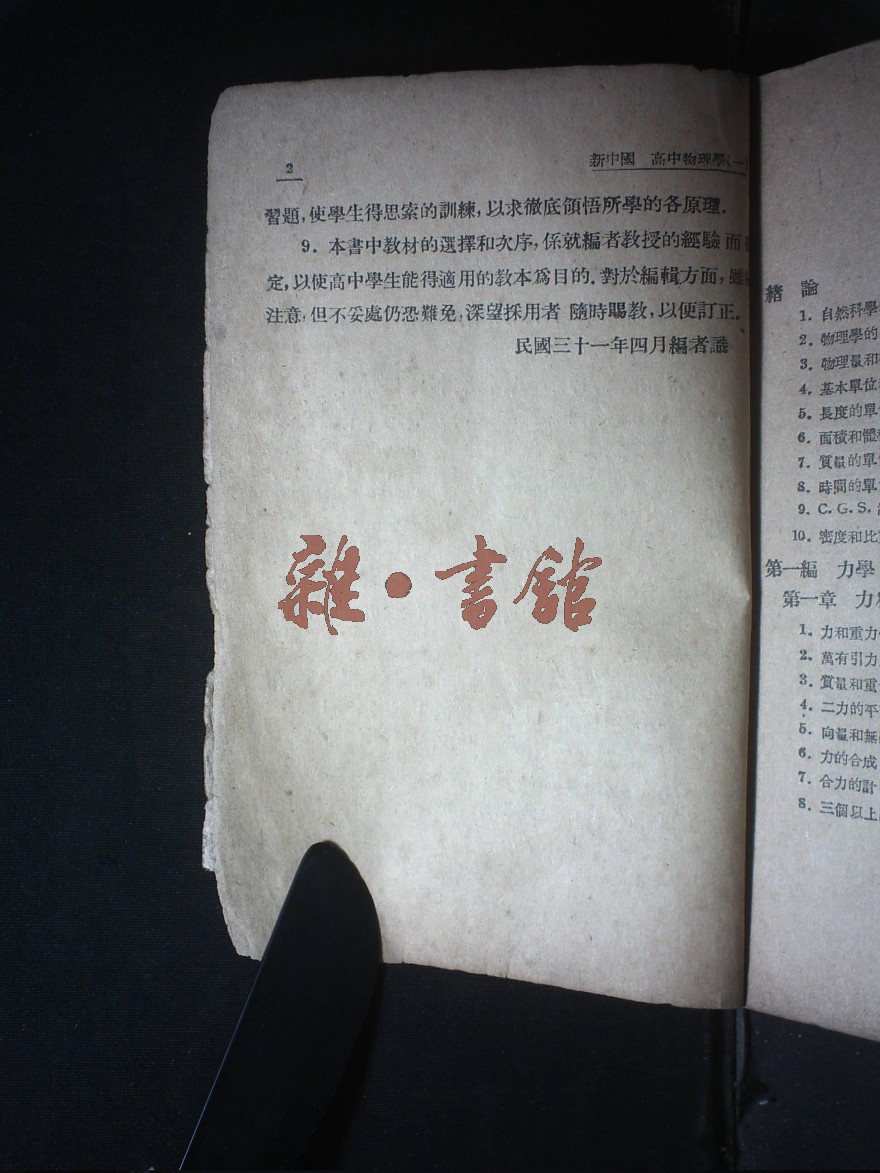 2
新中國 高中物理學(一
習題,使學生得思索的訓練,以求徹底領悟所學的各原理.
9. 本書中教材的選擇和次序,係就編者教授的經驗而
定,以使高中學生能得適用的教本爲目的.對於編輯方面,雖
注意,但不妥處仍恐難免,深望採用者 隨時賜教,以便訂正.
民國三十一年四月編者識
雜•書館
緒 論
1. 自然科學
2. 物理學的
3. 物理量和
4. 基本單位
5. 長度的單
6. 面積和體
7. 質量的單
8. 時間的單
9. C. G. S.
10. 密度和比
第一編 力學
第一章 力
1. 力和重力
2. 萬有引力
3. 質量和重
4. 二力的平
5. 向量和無
6. 力的合成
7. 合力的計
8. 三個以上